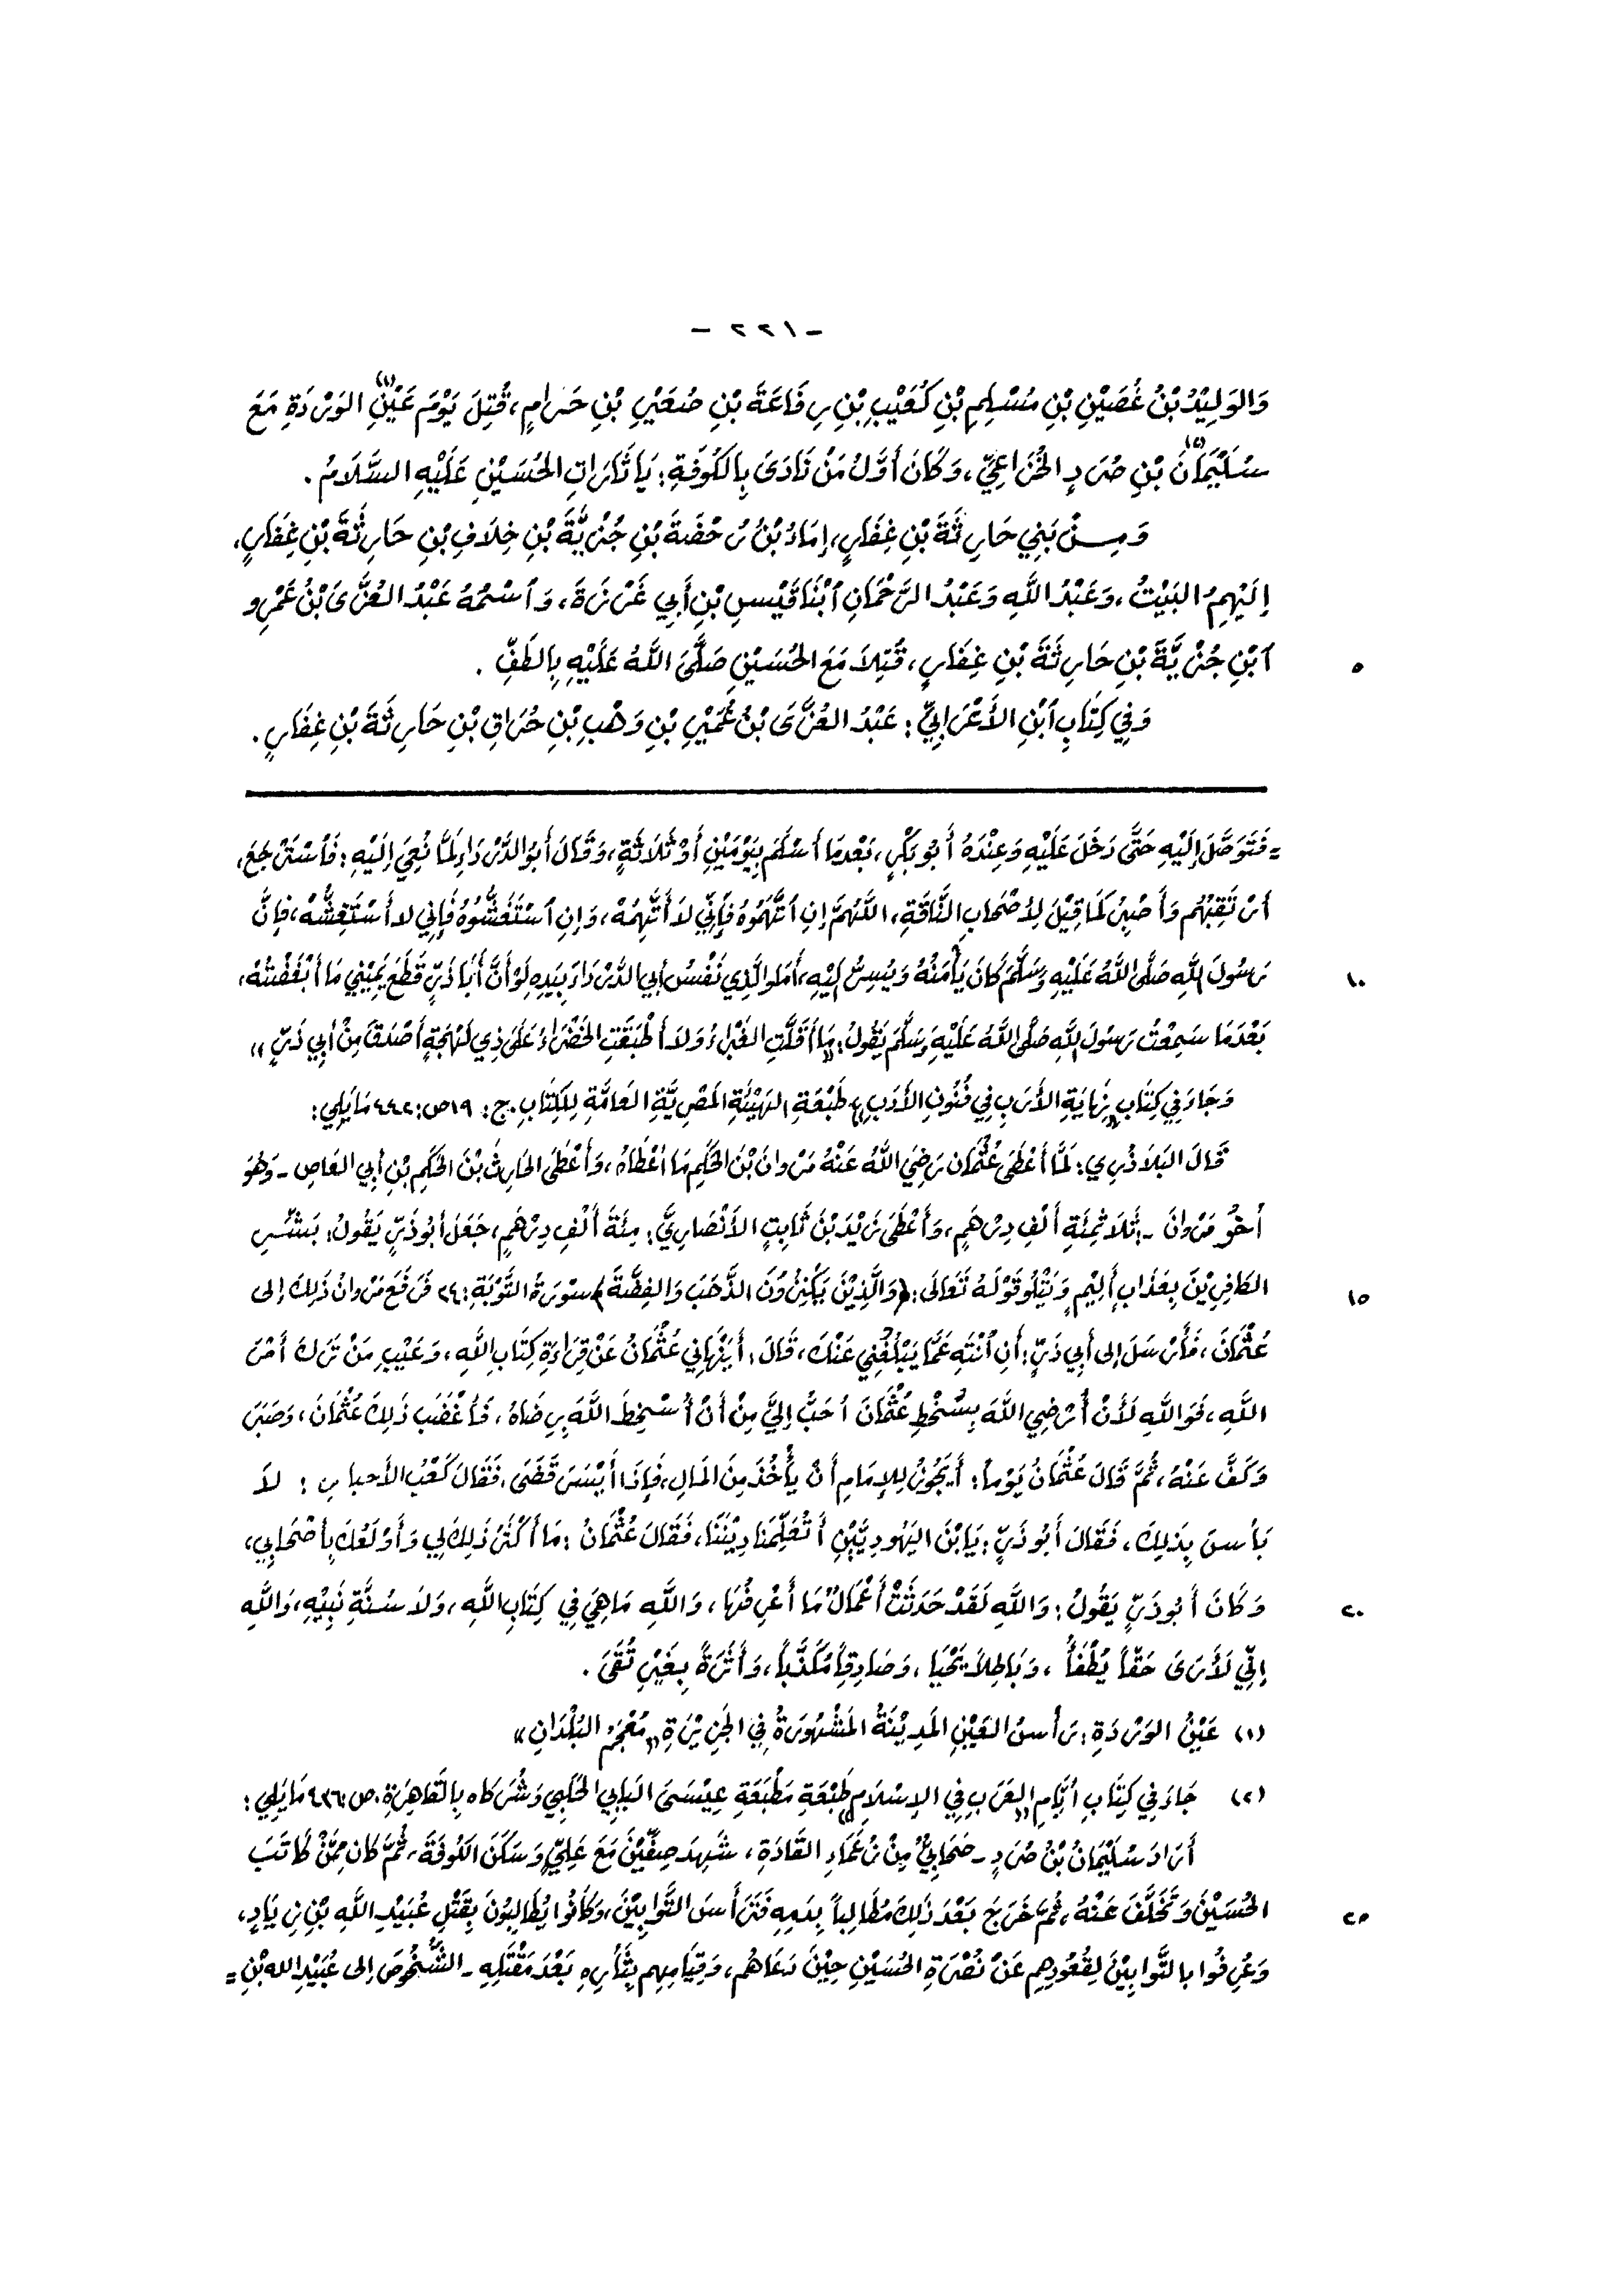 - ٢٢١ -
وَالوَلِيْدُ بْنُ غُصَيْنِ بْنِ مُسْلِمِ بْنِ كُعَيْبِ بْنِ رِفَاعَةَ بْنِ صُعَيْرِ بْنِ حَرَامٍ، قُتِلَ يَوْمَ عَيْنِ (١) الوَرْدَةِ مَعَ
سُلَيْمَانَ (٢) بْنِ صُرَدٍ الخُزَاعِيِّ، وَكَانَ أَوَّلُ مَنْ نَادَى بِالكُوفَةِ: يَا ثَارَاتِ الحُسَيْنِ عَلَيْهِ السَّلَامُ.
وَمِنْ بَنِي حَارِثَةَ بْنِ غِفَارٍ، إِمَاءُ بْنُ رَحْضَةَ بْنِ خُرْبَةَ بْنِ خِلَافِ بْنِ حَارِثَةَ بْنِ غِفَارٍ،
إِلَيْهِمُ البَيْتُ، وَعَبْدُ اللَّهِ وَعَبْدُ الرَّحْمَانِ ٱبْنَا قَيْسِ بْنِ أَبِي غَرْزَةَ، وَٱسْمُهُ عَبْدُ العُزَّى بْنُ عَمْرِو
ٱبْنِ حُرَيَّةَ بْنِ حَارِثَةَ بْنِ غِفَارٍ، قُتِلَا مَعَ الحُسَيْنِ صَلَّى اللَّهُ عَلَيْهِ بِالطَّفِّ. ٥
وَفِي كِتَابِ ٱبْنِ الأَعْرَابِيِّ: عَبْدُ العُزَّى بْنُ عُمَيْرِ بْنِ وَهْبِ بْنِ حُرَاقِ بْنِ حَارِثَةَ بْنِ غِفَارٍ.
= فَتَوَصَّلَ إِلَيْهِ حَتَّى دَخَلَ عَلَيْهِ وَعِنْدَهُ أَبُو بَكْرٍ، بَعْدَمَا أَسْلَمَ بِيَوْمَيْنِ أَوْ ثَلَاثَةٍ، وَقَالَ أَبُو الدَّرْدَاءِ لَمَّا نُعِيَ إِلَيْهِ: فَٱسْتَرْجَعَ،
ٱرْتَقِبْهُم وَٱصْبِرْ كَمَا قِيْلَ لِأَصْحَابِ النَّاقَةِ، اللَّهُمَّ إِنِ ٱتَّهَمُوهُ فَإِنِّي لَا أَتَّهِمُهُ، وَإِنِ ٱسْتَغَشُّوهُ فَإِنِّي لا أَسْتَغِشُّهُ، فَإِنَّ
رَسُولَ اللَّهِ صَلَّى اللَّهُ عَلَيْهِ وَسَلَّمَ كَانَ يَأْمَنُهُ وَيُسِرُّ إِلَيْهِ، أَمَا وَالَّذِي نَفْسُ أَبِي الدَّرْدَاءَ بِيَدِهِ لَوْ أَنَّ أَبَا ذَرٍّ قَطَعَ يَمِيْنِي مَا أَبْغَضْتُهُ، ١٠
بَعْدَمَا سَمِعْتُ رَسُولَ اللَّهِ صَلَّى اللَّهُ عَلَيْهِ وَسَلَّمَ يَقُولُ: «مَا أَقَلَّتِ الغَبْرَاءُ وَلَا أَطْبَقَتِ الخَضْرَاءُ عَلَى ذِي لَهْجَةٍ أَصْدَقَ مِنْ أَبِي ذَرٍّ»
وَجَاءَ فِي كِتَابِ «نِهَايَةِ الأَرَبِ فِي فُنُونِ الأَدَبِ» طَبْعَةِ الهَيْئَةِ المَصْرِيَّةِ العَامَّةِ لِلكِتَابِ. ج: ١٩ ص: ٤٤٢ مَا يَلِي:
قَالَ البَلَاذُرِي: لَمَّا أَعْطَى عُثْمَانُ رَضِيَ اللَّهُ عَنْهُ مَرْوانَ بْنَ الحَكَمِ مَا أَعْطَاهُ، وَأَعْطَى الحَارِثَ بْنَ الحَكَمِ بْنِ أَبِي العَاصِ - وَهُوَ
أَخُو مَرْوانَ - ثَلَاثَمِئَةِ أَلْفِ دِرْهَمٍ، وَأَعْطَى زَيْدَ بْنَ ثَابِتٍ الأَنْصَارِيَّ: مِئَةَ أَلْفِ دِرْهَمٍ، جَعَلَ أَبُو ذَرٍّ يَقُولُ: بَشِّرِ
الكَافِرِيْنَ بِعَذَابٍ أَلِيْمٍ وَيَتْلُو قَوْلَهُ تَعَالَى: ﴿وَالَّذِيْنَ يَكْنِزُونَ الذَّهَبَ وَالفِضَّةَ﴾ سُورَةُ التَّوْبَةِ: ٣٤ فَرَفَعَ مَرْوانُ ذَلِكَ إلى ١٥
عُثْمَانَ، فَأَرْسَلَ إلى أَبِي ذَرٍّ: أَنِ ٱنْتَهِ عَمَّا يَبْلُغُنِي عَنْكَ، قَالَ: أَيَنْهَانِي عُثْمَانُ عَنْ قِرَاءَةِ كِتَابِ اللَّهِ، وَعَيْبِ مَنْ تَرَكَ أَمْرَ
اللَّهِ، فَوَاللَّهِ لَأَنْ أُرْضِيَ اللَّهَ بِسُخْطِ عُثْمَانَ أَحَبُّ إِلَيَّ مِنْ أَنْ أُسْخِطَ اللَّهَ بِرِضَاهُ، فَأَغْضَبَ ذَلِكَ عُثْمَانَ، وَصَبَرَ
وَكَفَّ عَنْهُ، ثُمَّ قَالَ عُثْمَانُ يَوْماً: أَيَجُوزُ لِلإِمَامِ أَنْ يَأْخُذَ مِنَ المَالِ، فَإِذَا أَيْسَرَ قَضَى، فَقَالَ كَعْبُ الأَحبارِ: لَا
بَأْسَ بِذَلِكَ، فَقَالَ أَبُو ذَرٍّ: يَا بْنَ اليَهُودِيَّيْنِ أَتُعَلِّمُنَا دِيْنَنَا، فَقَالَ عُثْمَانُ: مَا أَكْثَرَ ذَلِكَ لِي وَأَوْلَعَكَ بِأَصْحَابِي،
وَكَانَ أَبُو ذَرٍّ يَقُولُ: وَاللَّهِ لَقَدْ حَدَثَتْ أَعْمَالٌ مَا أَعْرِفُهَا، وَاللَّهِ مَا هِيَ فِي كِتَابِ اللَّهِ، وَلَا سُنَّةِ نَبِيِّهِ، وَاللَّهِ ٢٠
إِنِّي لَأَرَى حَقّاً يُطْفَأُ، وَبَاطِلاً يَحْيَا، وَصَادِقاً مُكَذَّباً، وَأَثَرَةً بِغَيْرِ تُقَى.
(١) عَيْنُ الوَرْدَةِ: رَأْسُ العَيْنِ المَدِيْنَةُ المَشْهُورَةُ فِي الجَزِيْرَةِ «مُعْجَمُ البُلْدَانِ»
(٢) جَاءَ فِي كِتَابِ «أَيَّامِ العَرَبِ فِي الإِسْلَامِ» طَبْعَةِ مَطْبَعَةِ عِيْسَى البَابِي الحَلَبِي وَشُرَكَاه بِالقَاهِرَةِ. ص: ٤٣٦ مَا يَلِي:
أَرَادَ سُلَيْمَانُ بْنُ صُرَدٍ - صَحَابِيٌّ مِنْ زُعَمَاءِ القَادَةِ، شَهِدَ صِفِّيْنَ مَعَ عَلِيٍّ وَسَكَنَ الكُوفَةَ، ثُمَّ كَانَ مِمَّنْ كَاتَبَ
الحُسَيْنَ وَتَخَلَّفَ عَنْهُ، ثُمَّ خَرَجَ بَعْدَ ذَلِكَ مُطَالِباً بِدَمِهِ فَتَرَأَّسَ التَّوابِيْنَ، وَكَانُوا يُطَالِبُونَ بِقَتْلِ عُبَيْدِ اللَّهِ بْنِ زِيَادٍ، ٢٥
وَعُرِفُوا بالتَّوابِيْنَ لِقُعُودِهِم عَنْ نُصْرَةِ الحُسَيْنِ حِيْنَ دَعَاهُم، وَقِيَامِهِم بِثَأْرِهِ بَعْدَ مَقْتَلِهِ - الشُّخُوصَ إلى عُبَيْدِ الله بْنِ =